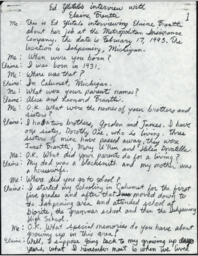 Ed Yelitals interview with
Elaine Trentti
1
Me: This is Ed Yelitals interviewing Elaine Trentti
about her job at the Metropolitan Insurance
Company, the date is February 17, 1993. The
location is Ishpeming, Michigan.
Me: When were you born?
Elaine: I was born in 1931.
Me: Where was that?
Elaine: In Calumet, Michigan.
Me: What were your parents names?
Elaine: Alice and Leonard Trentti.
Me: O.K. What were the names of your brothers and
sisters?
Elaine: I had two brothers, Gordon and James. I have
one sister, Dorothy, who is living. three
sisters of mine have passed away, they were
Janet Trentti, Mary and
Me: O.K. What did your parents do for a living?
Elaine: My dad was a and my mother was
a housewife.
Me: Where did you go to school?
Elaine: I started my schooling in Calumet for the first
five grades and after that moved down to
the Ishpeming area and attended school at
Diorite, the grammar school and then the Ishpeming
High School.
Me: O.K. What special memories do you have about
growing up in this area?
Elaine: Well, I suppose going back to my growing up
years, what I remember most is when we lived